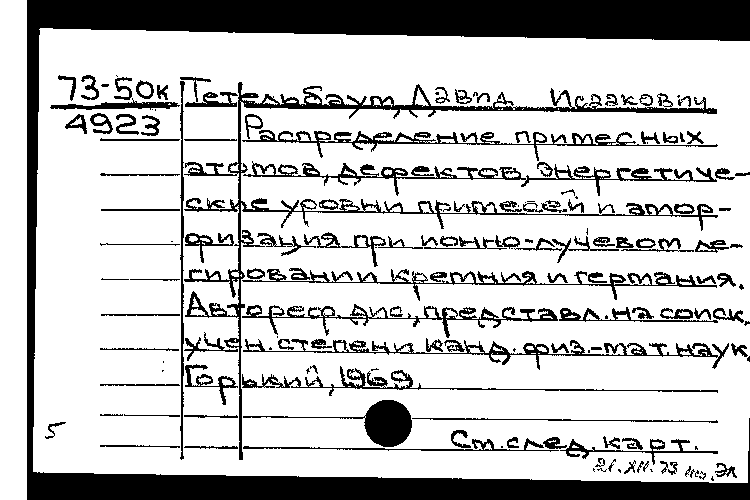 73-50к Тетельбаум, Давид Исаакович
4923 Распределение примесных
атомов, дефектов, энергетиче-
ские уровни примесей и амор-
физация при ионно-лучевом ле-
гировании кремния и германия.
Автореф. дис., представл. на соиск.
учен. степени канд. физ.-мат. наук.
Горький, 1969.
5
См. след. карт.
21.XII.73